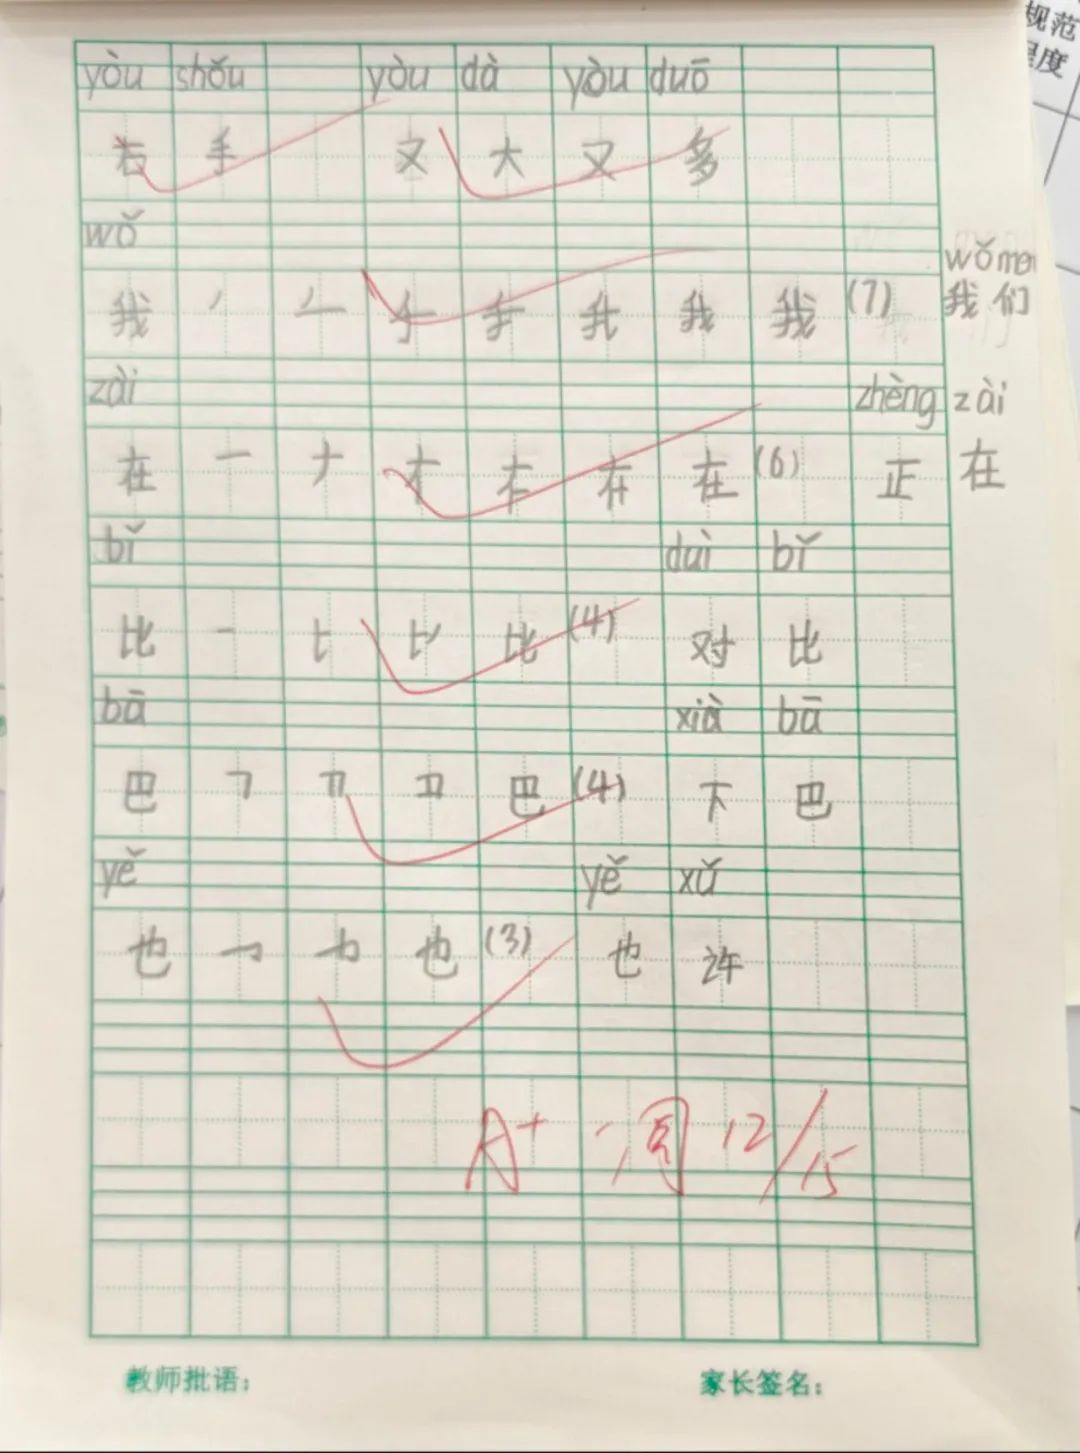 规范
程度
yòu shǒu yòu dà yòu duō
右手 又大又多
wǒ
wǒ men
我 丿 我 我 (7) 我们
zài zhèng zài
在 一 ナ 在 (6) 正在
bǐ duì bǐ
比 一 比 (4) 对比
bā xià bā
巴 巴 (4) 下巴
yě yě xǔ
也 也 (3) 也许
A+ 周 12/15
教师批语: 家长签名: